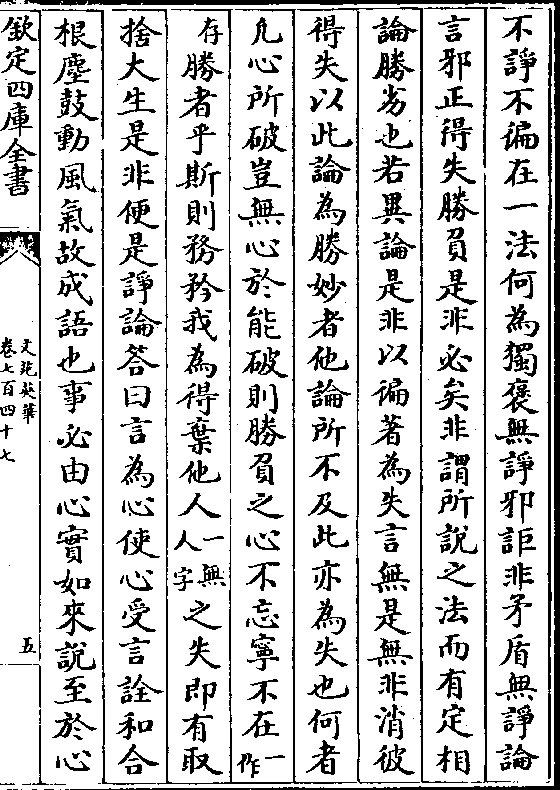 不諍不徧在一法何為獨褒無諍邪詎非矛盾無諍論
言邪正得失勝負是非必矣非謂所說之法而有定相
論勝劣也若異論是非以徧著為失言無是無非消彼
得失以此論為勝妙者他論所不及此亦為失也何者
凡心所破豈無心於能破則勝負之心不忘寧不在一作
存勝者乎斯則務矜我為得棄他人一無人字之失即有取
捨大生是非便是諍論答曰言為心使心受言詮和合
根塵鼓動風氣故成語也事必由心實如來說至於心
欽定四庫全書
文苑英華
卷七百四十七
五